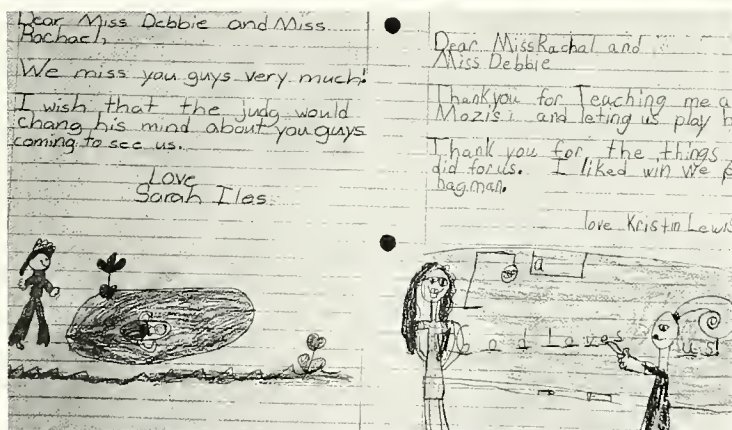 Dear Miss Debbie and Miss
Rachael,
We miss you guys very much!
I wish that the judg would
chang his mind about you guys
coming to see us.
Love
Sarah Iles
Dear Miss Rachal and
Miss Debbie
Thankyou for Teaching me a
and leting us play
Thank you for the things
did for us. I liked win we
hagman.
love Kristin Lewis
a
God Loves us!